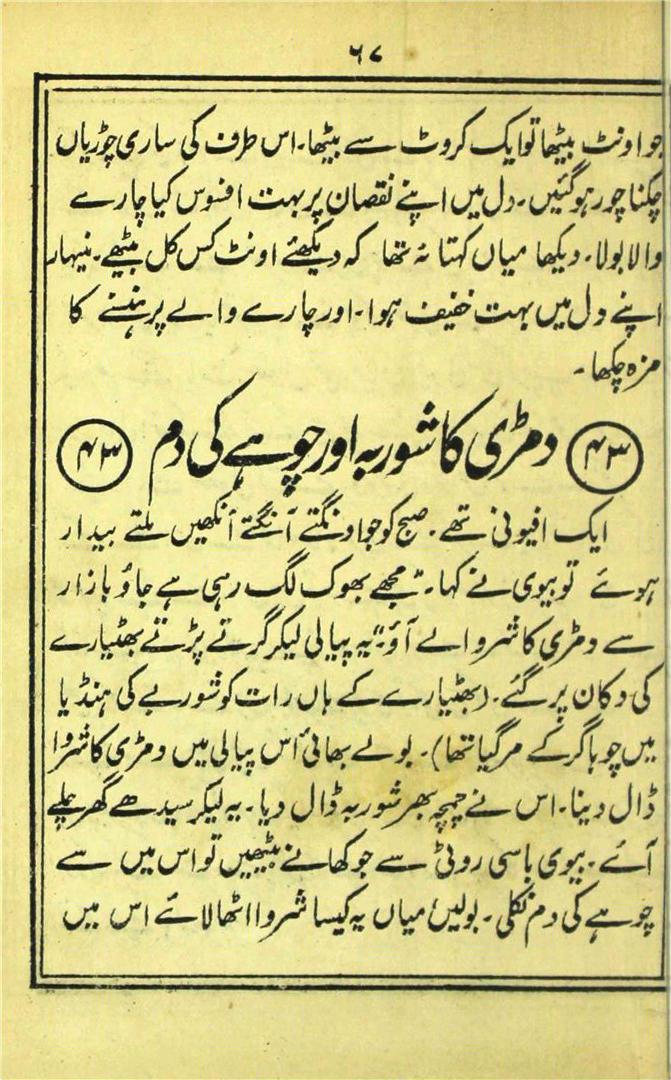 ۶۷
جو اونٹ بیٹھا تو ایک کروٹ سے بیٹھا۔ اس طرف کی ساری چوڑیاں
چکنا چور ہوگئیں۔ دل میں اپنے نقصان پر بہت افسوس کیا چارے
والا بولا۔ دیکھا میاں کہتا نہ تھا کہ دیکھئے اونٹ کس کل بیٹھے۔ منیہار
اپنے دل میں بہت خفیف ہوا۔ اور چارے والے پر ہنسنے کا
مزہ چکھا۔
۴۳ دمڑی کا شوربہ اور چوہے کی دم ۴۳
ایک افیونی تھے۔ صبح کو جو اونگتے آنگتے آنکھیں ملتے بیدار
ہوئے تو بیوی نے کہا۔ "مجھے بھوک لگ رہی ہے جاؤ بازار
سے دمڑی کا شروا لے آؤ" یہ پیالی لیکر گرتے پڑتے بھٹیارے
کی دکان پر گئے۔ (بھٹیارے کے ہاں رات کو شوربے کی ہنڈیا
میں چوہا گر کے مر گیا تھا)۔ بولے بھائی اس پیالی میں دمڑی کا شروا
ڈال دینا۔ اس نے چمچہ بھر شوربہ ڈال دیا۔ یہ لیکر سیدھے گھر چلے
آئے۔ بیوی باسی روٹی سے جو کھانے بیٹھیں تو اس میں سے
چوہے کی دم نکلی۔ بولیں میاں یہ کیسا شروا اٹھا لائے اس میں